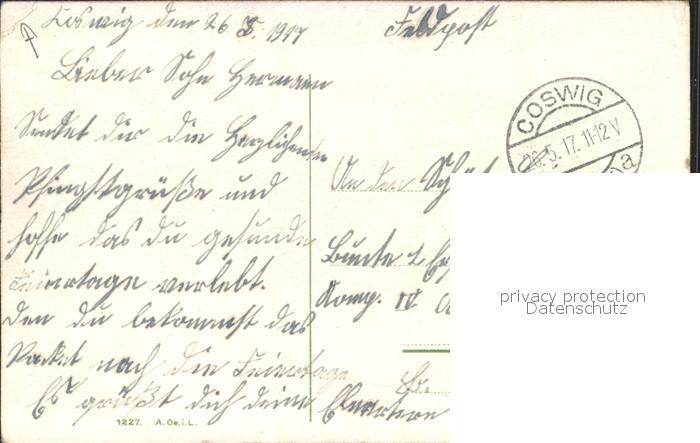 Coswig den 26 5. 1917
Feldpost
Lieber Sohn Hermann
Sendet dir die Herzlichsten
Pfingstgrüße und
hoffe das du gesunde
Feiertage verlebt.
den du bekommst das
Packet nach die Feiertage
Es grüßt dich deine
An den
Bunte
Komp. IV
COSWIG
26.5.17.11-12V
1227. A. Oe. i. L.
privacy protection
Datenschutz